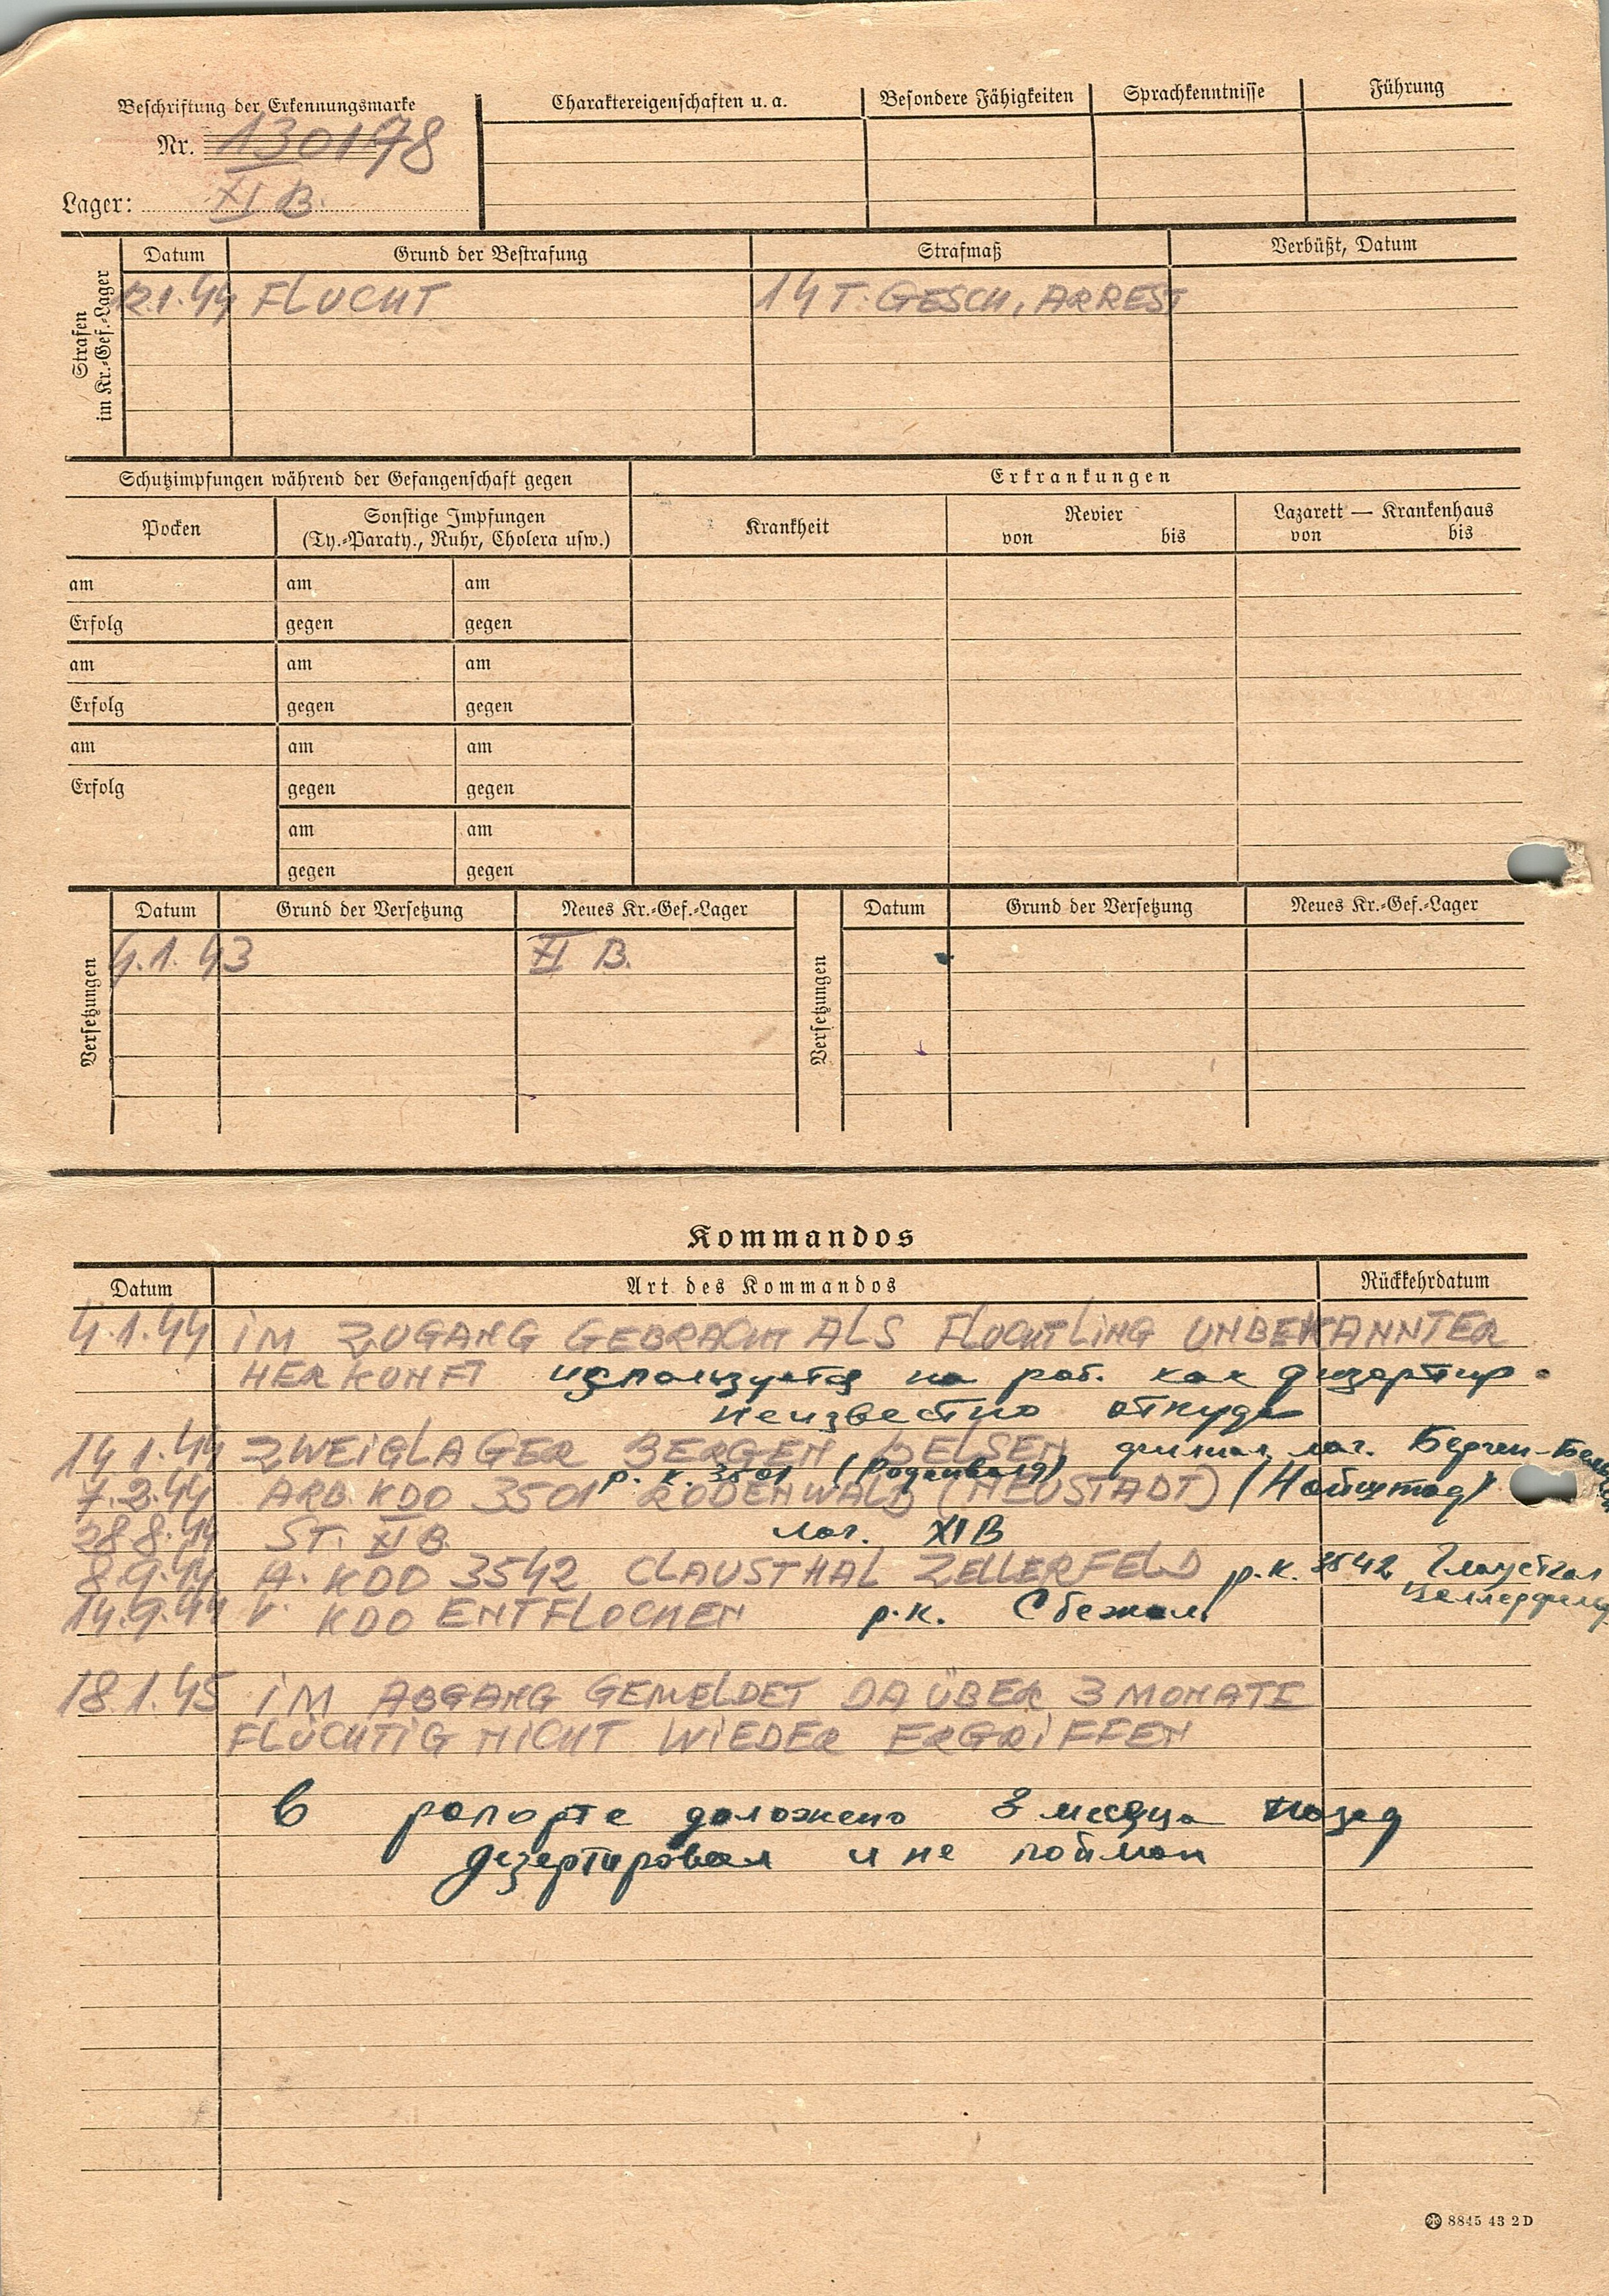 Beschriftung der Erkennungsmarke
Nr. 130178
Lager: XI B.
Charaktereigenschaften u. a. Besondere Fähigkeiten Sprachkenntnisse Führung
Strafen im Kr.-Gef.-Lager
Datum Grund der Bestrafung Strafmaß Verbüßt, Datum
12.1.44 FLUCHT 14 T. GESCH, ARREST
Schutzimpfungen während der Gefangenschaft gegen Erkrankungen
Pocken Sonstige Impfungen Krankheit Revier Lazarett — Krankenhaus
(Ty.-Paraty., Ruhr, Cholera usw.) von bis von bis
am am am
Erfolg gegen gegen
am am am
Erfolg gegen gegen
am am am
Erfolg gegen gegen
am am
gegen gegen
Versetzungen Datum Grund der Versetzung Neues Kr.-Gef.-Lager Versetzungen Datum Grund der Versetzung Neues Kr.-Gef.-Lager
4.1.43 XI B.
Kommandos
Datum Art des Kommandos Rückkehrdatum
4.1.44 IM ZUGANG GEBRACHT ALS FLUCHTLING UNBEKANNTER
HERKUNFT используется на раб. как дизертир
неизвестно откуда
14.1.44 ZWEIGLAGER BERGEN BELSEN филиал лаг. Берген-
р. к. 3501 (Роденвальд)
7.2.44 ARB. KDO 3501 RODENWALD (NEUSTADT) (Нойштад)
28.8.44 ST. XI B. лаг. XIB
8.9.44 A. KDO 3542 CLAUSTHAL ZELLERFELD р.к. 3542 Глаустал
Целлерфельд
14.9.44 V. KDO ENTFLOCHEN р.к. Сбежал
18.1.45 IM ABGANG GEMELDET DA ÜBER 3 MONATE
FLÜCHTIG NICHT WIEDER ERGRIFFEN
в рапорте доложено 3 месяца назад
дезертировал и не пойман
8845 43 2 D